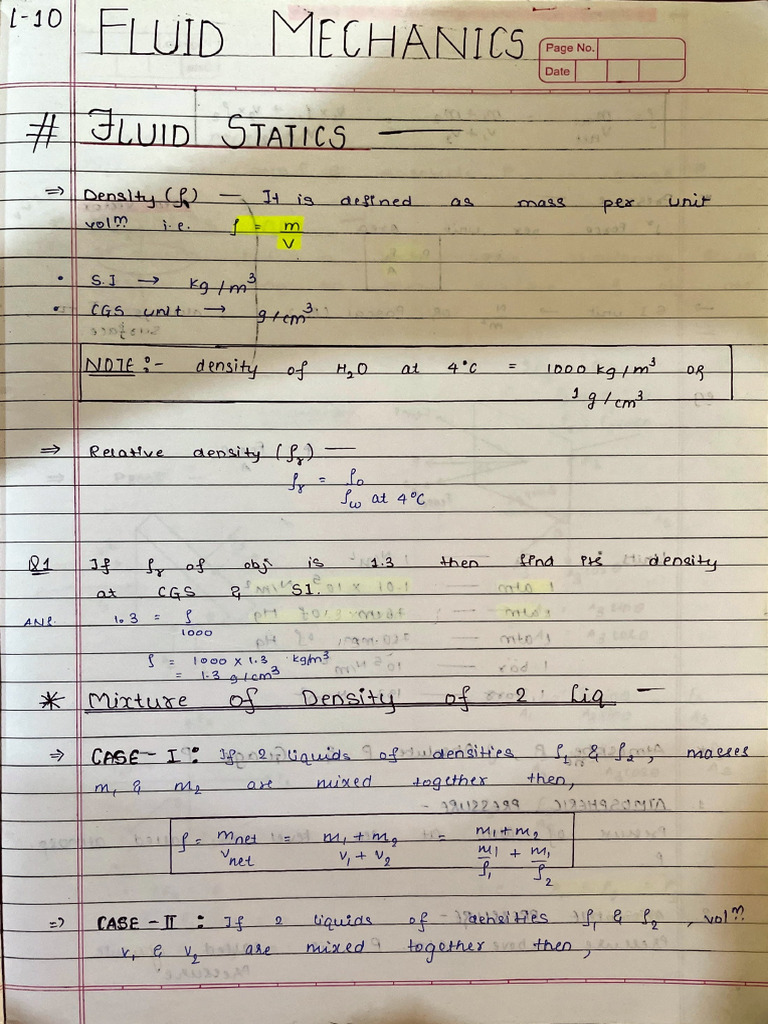 L-10
FLUID MECHANICS
Page No.
Date
# FLUID STATICS —
⇒ Density (ρ) — It is defined as mass per unit
volm i.e. ρ = m/V
• S.I → kg/m³
• CGS unit → g/cm³
NOTE :- density of H₂O at 4°C = 1000 kg/m³ OR
1 g/cm³
⇒ Relative density (ρr) —
ρr = ρo / ρw at 4°C
Q1 If ρr of obj is 1.3 then find its density
at CGS & SI.
ANS. 1.3 = ρ/1000
ρ = 1000 x 1.3 kg/m³
= 1.3 g/cm³
* Mixture of Density of 2 Liq —
⇒ CASE-I : If 2 liquids of densities ρ₁ & ρ₂, masses
m₁ & m₂ are mixed together then,
ρ = mnet/Vnet = m₁ + m₂ / V₁ + V₂ = m₁ + m₂ / m₁/ρ₁ + m₁/ρ₂
⇒ CASE-II : If 2 liquids of densities ρ₁ & ρ₂, volm
v₁ & v₂ are mixed together then,